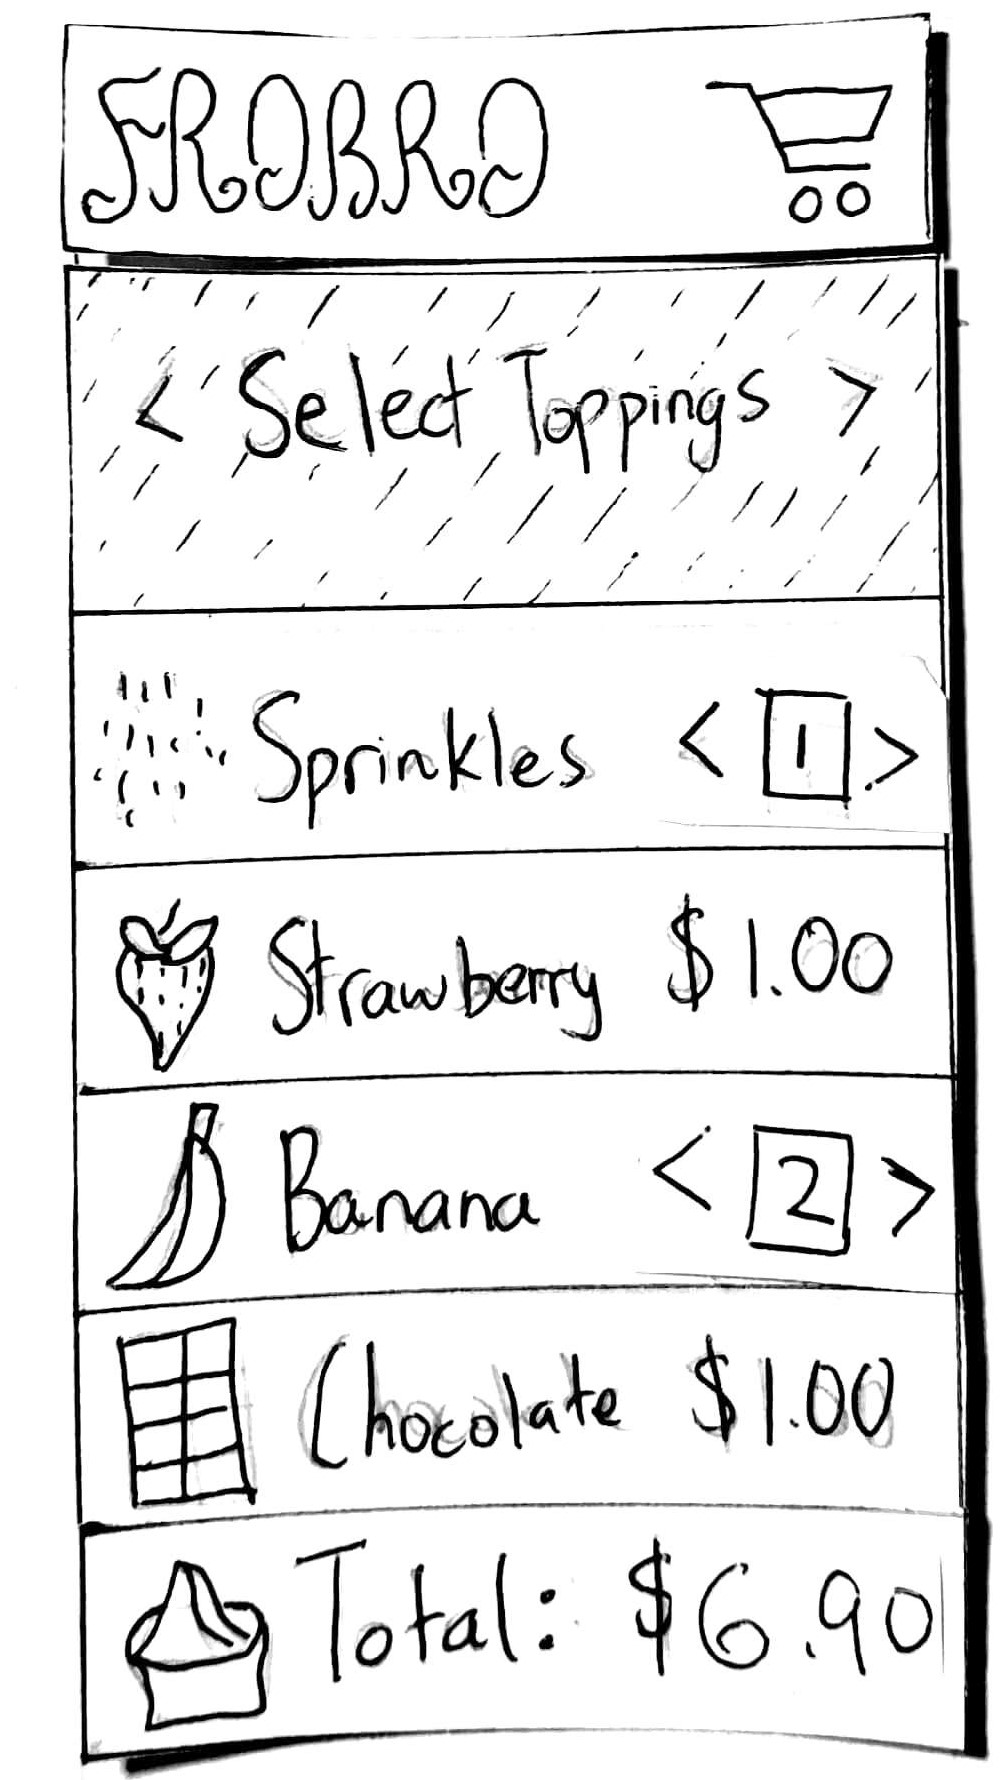 FROBRO
< Select Toppings >
Sprinkles < 1 >
Strawberry $1.00
Banana < 2 >
Chocolate $1.00
Total: $6.90